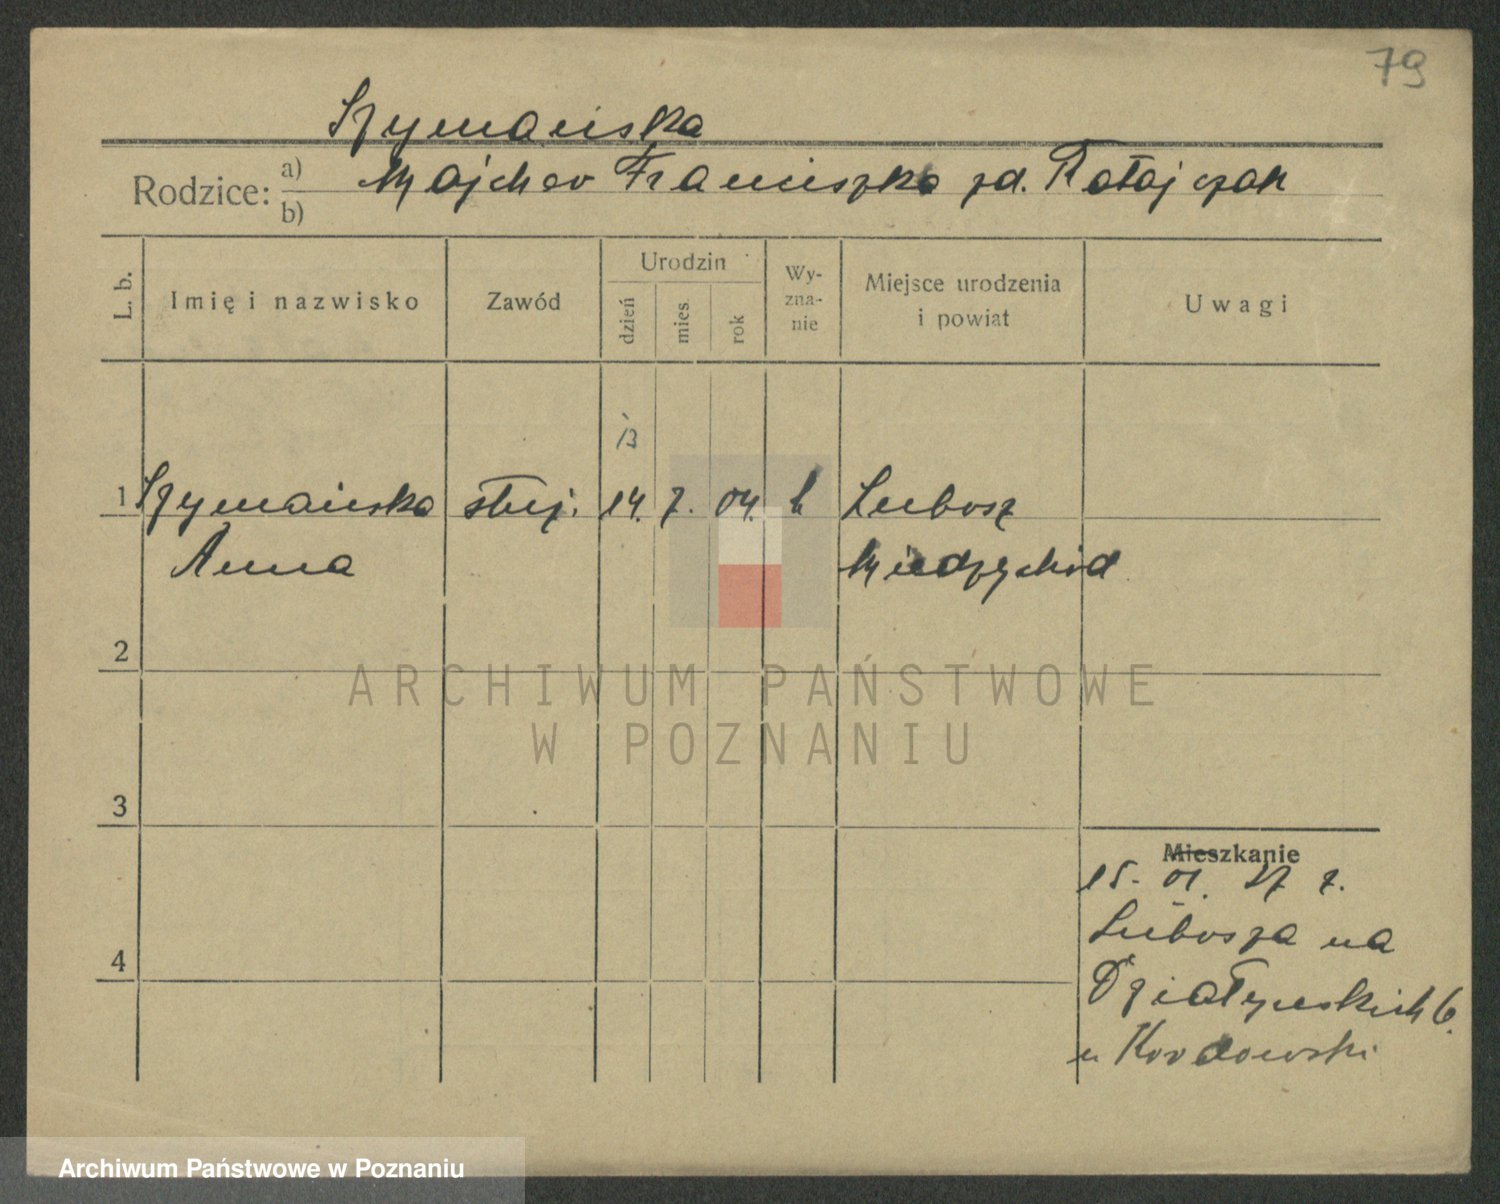 79
Szymańska
Rodzice: a) Majcher Franciszka zd. Ratajczak
b)
L. b. Imię i nazwisko Zawód Urodzin dzień mies rok Wy-zna-nie Miejsce urodzenia i powiat Uwagi
13
1 Szymańska służ. 14. 7. 04. k Lubosz
Anna Międzychód
2
ARCHIWUM PAŃSTWOWE
W POZNANIU
3
Mieszkanie
15. 01. 27 z.
Lubosza na
4
Działyńskich 6.
u Kordowski
Archiwum Państwowe w Poznaniu